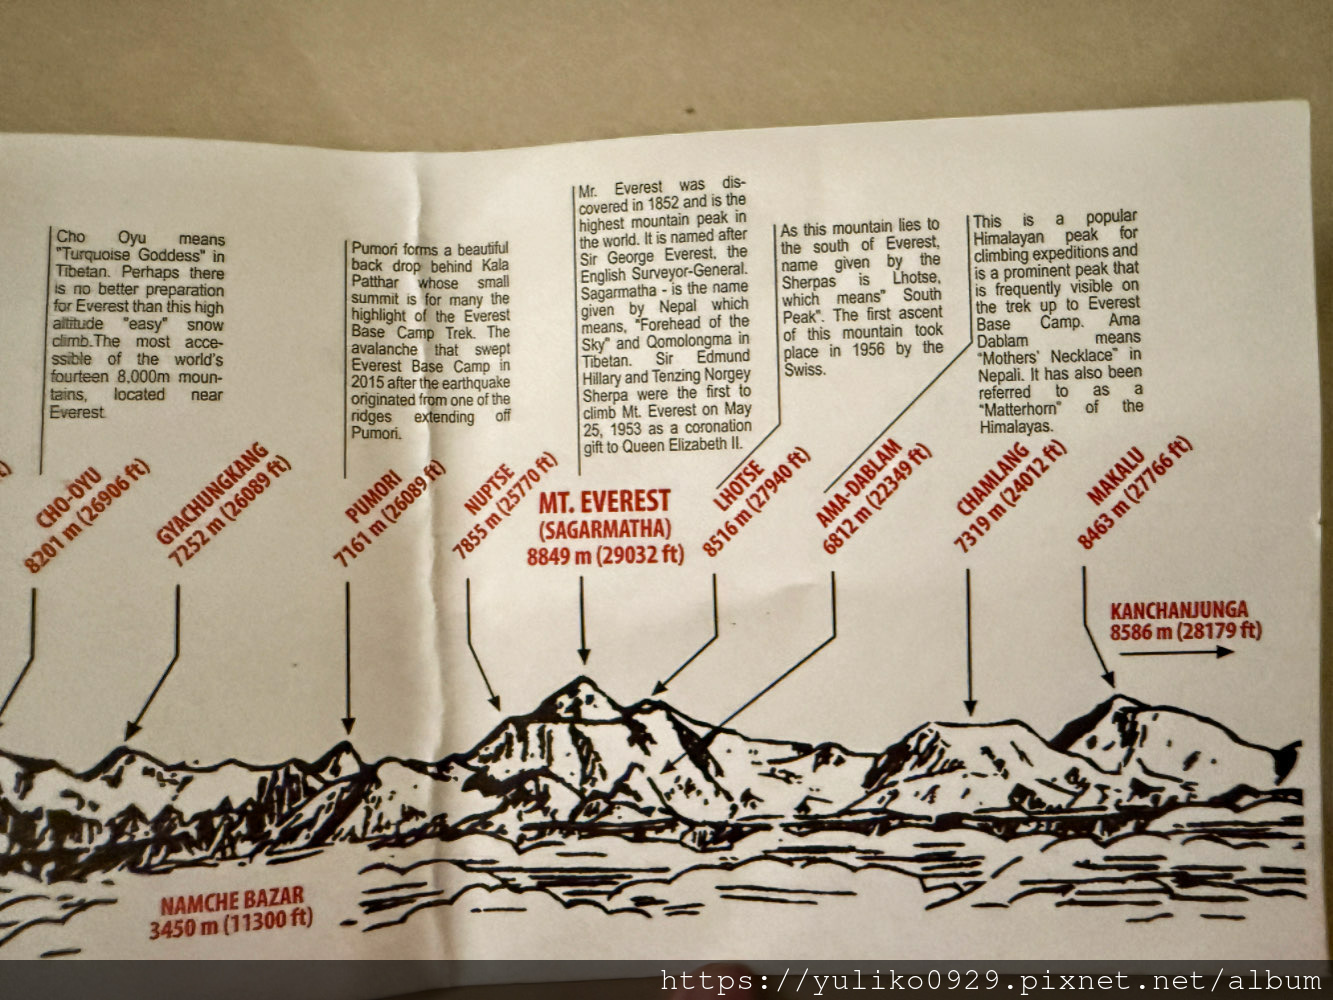 Cho Oyu means
"Turquoise Goddess" in
Tibetan. Perhaps there
is no better preparation
for Everest than this high
altitude "easy" snow
climb.The most acce-
ssible of the world's
fourteen 8,000m moun-
tains, located near
Everest.
Pumori forms a beautiful
back drop behind Kala
Patthar whose small
summit is for many the
highlight of the Everest
Base Camp Trek. The
avalanche that swept
Everest Base Camp in
2015 after the earthquake
originated from one of the
ridges extending off
Pumori.
Mr. Everest was dis-
covered in 1852 and is the
highest mountain peak in
the world. It is named after
Sir George Everest, the
English Surveyor-General.
Sagarmatha - is the name
given by Nepal which
means, "Forehead of the
Sky" and Qomolongma in
Tibetan. Sir Edmund
Hillary and Tenzing Norgey
Sherpa were the first to
climb Mt. Everest on May
25, 1953 as a coronation
gift to Queen Elizabeth II.
As this mountain lies to
the south of Everest,
name given by the
Sherpas is Lhotse,
which means" South
Peak". The first ascent
of this mountain took
place in 1956 by the
Swiss.
This is a popular
Himalayan peak for
climbing expeditions and
is a prominent peak that
is frequently visible on
the trek up to Everest
Base Camp. Ama
Dablam means
"Mothers' Necklace" in
Nepali. It has also been
referred to as a
"Matterhorn" of the
Himalayas.
CHO-OYU
8201 m (26906 ft)
GYACHUNGKANG
7252 m (26089 ft)
PUMORI
7161 m (26089 ft)
NUPTSE
7855 m (25770 ft)
MT. EVEREST
(SAGARMATHA)
8849 m (29032 ft)
LHOTSE
8516 m (27940 ft)
AMA-DABLAM
6812 m (22349 ft)
CHAMLANG
7319 m (24012 ft)
MAKALU
8463 m (27766 ft)
KANCHANJUNGA
8586 m (28179 ft)
NAMCHE BAZAR
3450 m (11300 ft)
https://yuliko0929.pixnet.net/album